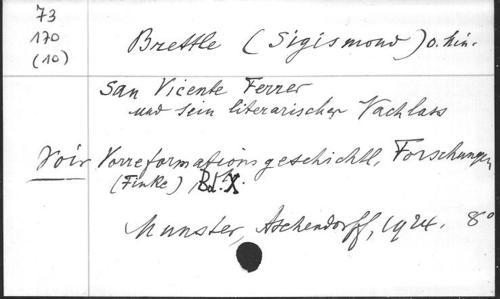 73
170
(10)
Brettle (Sigismond) o. min.
San Vicente Ferrer
und sein literarischer Nachlass
Voir Vorreformationsgeschichtl. Forschungen
(Finke) Bd. X.
Munster, Aschendorff, 1924. 8°